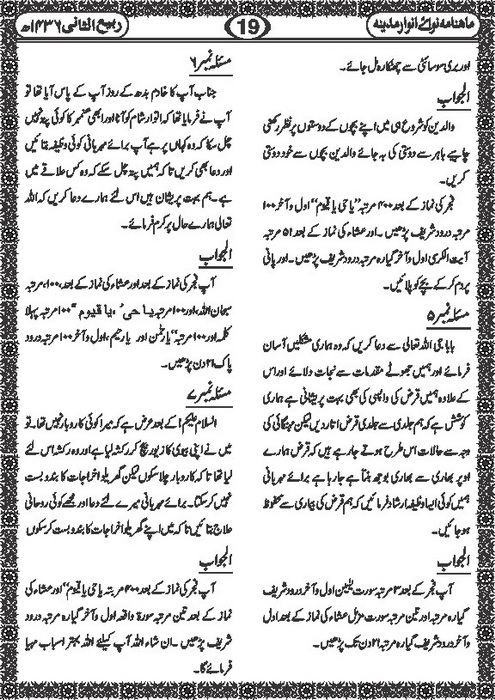 ماہنامہ نوائے انوارِ مدینہ
19
ربیع الثانی ۱۴۳۶ھ
اور بری سوسائٹی سے چھٹکارہ مل جائے۔
الجواب
والدین کو شروع ہی میں اپنے بچوں کے دوستوں پر نظر رکھنی
چاہیے باہر سے دوستی کی بہ جائے والدین بچوں سے خود دوستی
کریں۔
فجر کی نماز کے بعد ۴۰۰ مرتبہ ”یا حی یا قیوم“ اول و آخر ۱۰۰
مرتبہ درود شریف پڑھیں۔ اور عشاء کی نماز کے بعد ۵۱ مرتبہ
آیت الکرسی اول و آخر گیارہ مرتبہ درود شریف پڑھیں۔ اور پانی
پر دم کر کے بچے کو پلائیں۔
مسئلہ نمبر ۵
بابا جی اللہ تعالیٰ سے دعا کریں کہ وہ ہماری مشکلیں آسان
فرمائے اور ہمیں جھوٹے مقدمات سے نجات دلائے اور اس
کے علاوہ ہمیں قرض کی واپسی کی بھی بہت پریشانی ہے ہماری
کوشش ہے کہ ہم جلدی سے جلدی قرض اتار دیں لیکن مہنگائی کی
وجہ سے حالات اس طرح ہوتے جا رہے ہیں کہ قرض ہمارے
اوپر بھاری سے بھاری بوجھ بنتا ہے جا رہا ہے برائے مہربانی
ہمیں کوئی ایسا وظیفہ ارشاد فرمائیں کہ ہم قرض کی بیماری سے محفوظ
ہو جائیں۔
الجواب
آپ فجر کے بعد ۳ مرتبہ سورت یٰسین اول و آخر درود شریف
گیارہ مرتبہ اور تین مرتبہ سورت مزمل عشاء کی نماز کے بعد اول
و آخر درود شریف گیارہ مرتبہ ۲۱ دن تک پڑھیں۔
مسئلہ نمبر ۶
جناب آپ کا خادم بدھ کے روز آپ کے پاس آیا تھا تو
آپ نے فرمایا تھا کہ اتوار شام کو آنا اور ابھی تک ہمیر کا کوئی پتہ نہیں
چل سکا کہ وہ کہاں پر ہے آپ برائے مہربانی کوئی وظیفہ بتائیں
اور دعا بھی کریں تا کہ ہمیں پتہ چل سکے کہ وہ کس علاقے میں
ہے۔ ہم بہت پریشان ہیں اس لئے ہمارے دعا کریں کہ اللہ
تعالیٰ ہمارے حال پر کرم فرمائے۔
الجواب
آپ فجر کی نماز کے بعد اور عشاء کی نماز کے بعد، ۱۰۰، مرتبہ
سبحان اللہ، اور ۱۰۰ مرتبہ یا حی، یا قیوم“ ۱۰۰ مرتبہ پہلا
کلمہ اور ۱۰۰ مرتبہ ”یا رحمٰن اور یا رحیم، اول و آخر ۱۰۰ مرتبہ درود
پاک ۲۱ دن پڑھیں۔
مسئلہ نمبر ۷
السلام علیکم! کے بعد عرض ہے کہ میرا کوئی کاروبار نہیں تھا۔ تو
میں نے اپنی بیوی کا زیور بیچ کر رکشہ لیا ہے اور وہ رکشہ اس لئے
لیا تھا تا کہ کاروبار چلا سکوں لیکن گھریلو اخراجات کا بندوبست
نہیں کر سکتا۔ برائے مہربانی میرے لئے دعا اور مجھے کوئی روحانی
علاج بتائیں تا کہ میں اپنے گھریلو اخراجات کا بندوبست کر سکوں
الجواب
آپ فجر کی نماز کے بعد ۴۰۰ مرتبہ یا حی یا قیوم“ اور عشاء کی
نماز کے بعد تین مرتبہ سورۃ واقعہ اول و آخر گیارہ مرتبہ درود
شریف پڑھیں۔ ان شاء اللہ آپ کیلئے اللہ بہتر اسباب مہیا
فرمائے گا۔